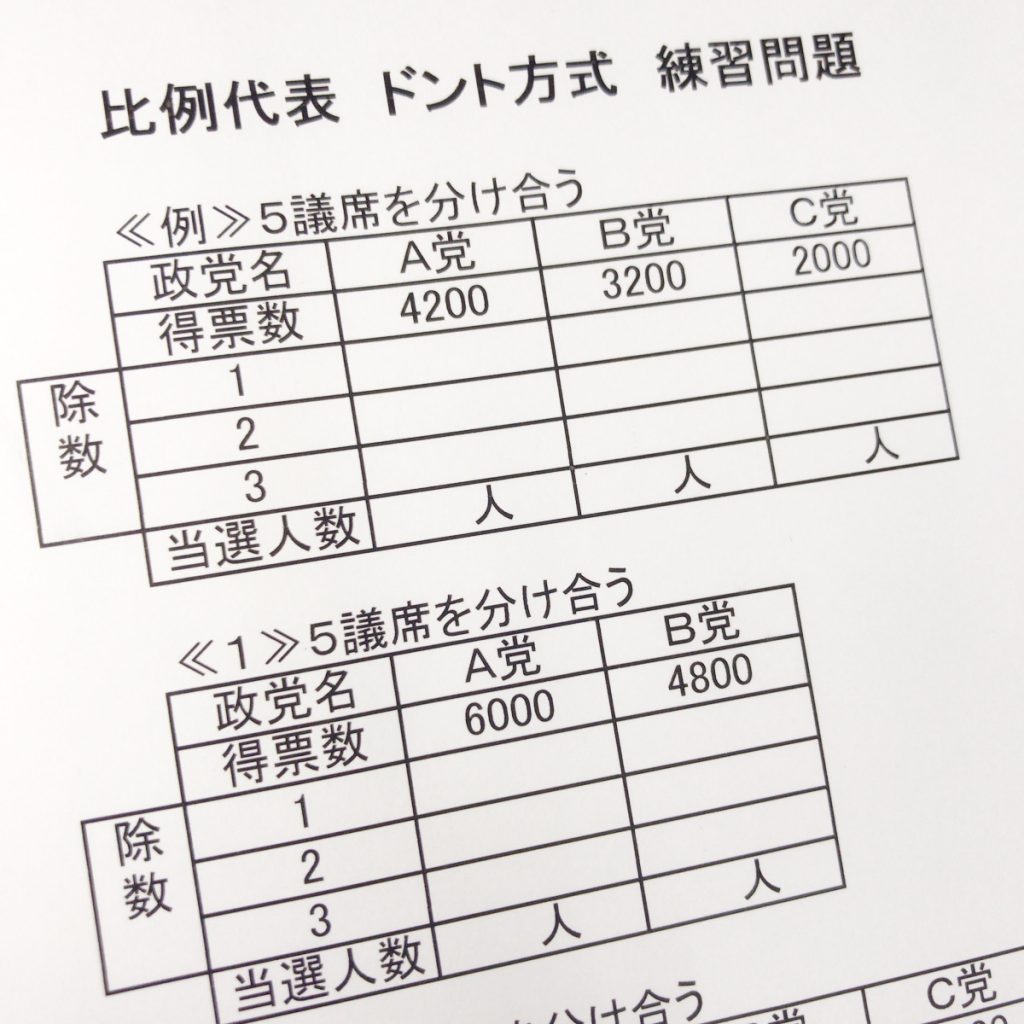 比例代表 ドント方式 練習問題
≪例≫5議席を分け合う
政党名 A党 B党 C党
得票数 4200 3200 2000
除数
1
2
3
当選人数 人 人 人
≪1≫5議席を分け合う
政党名 A党 B党
得票数 6000 4800
除数
1
2
3
当選人数 人 人
を分け合う
C党